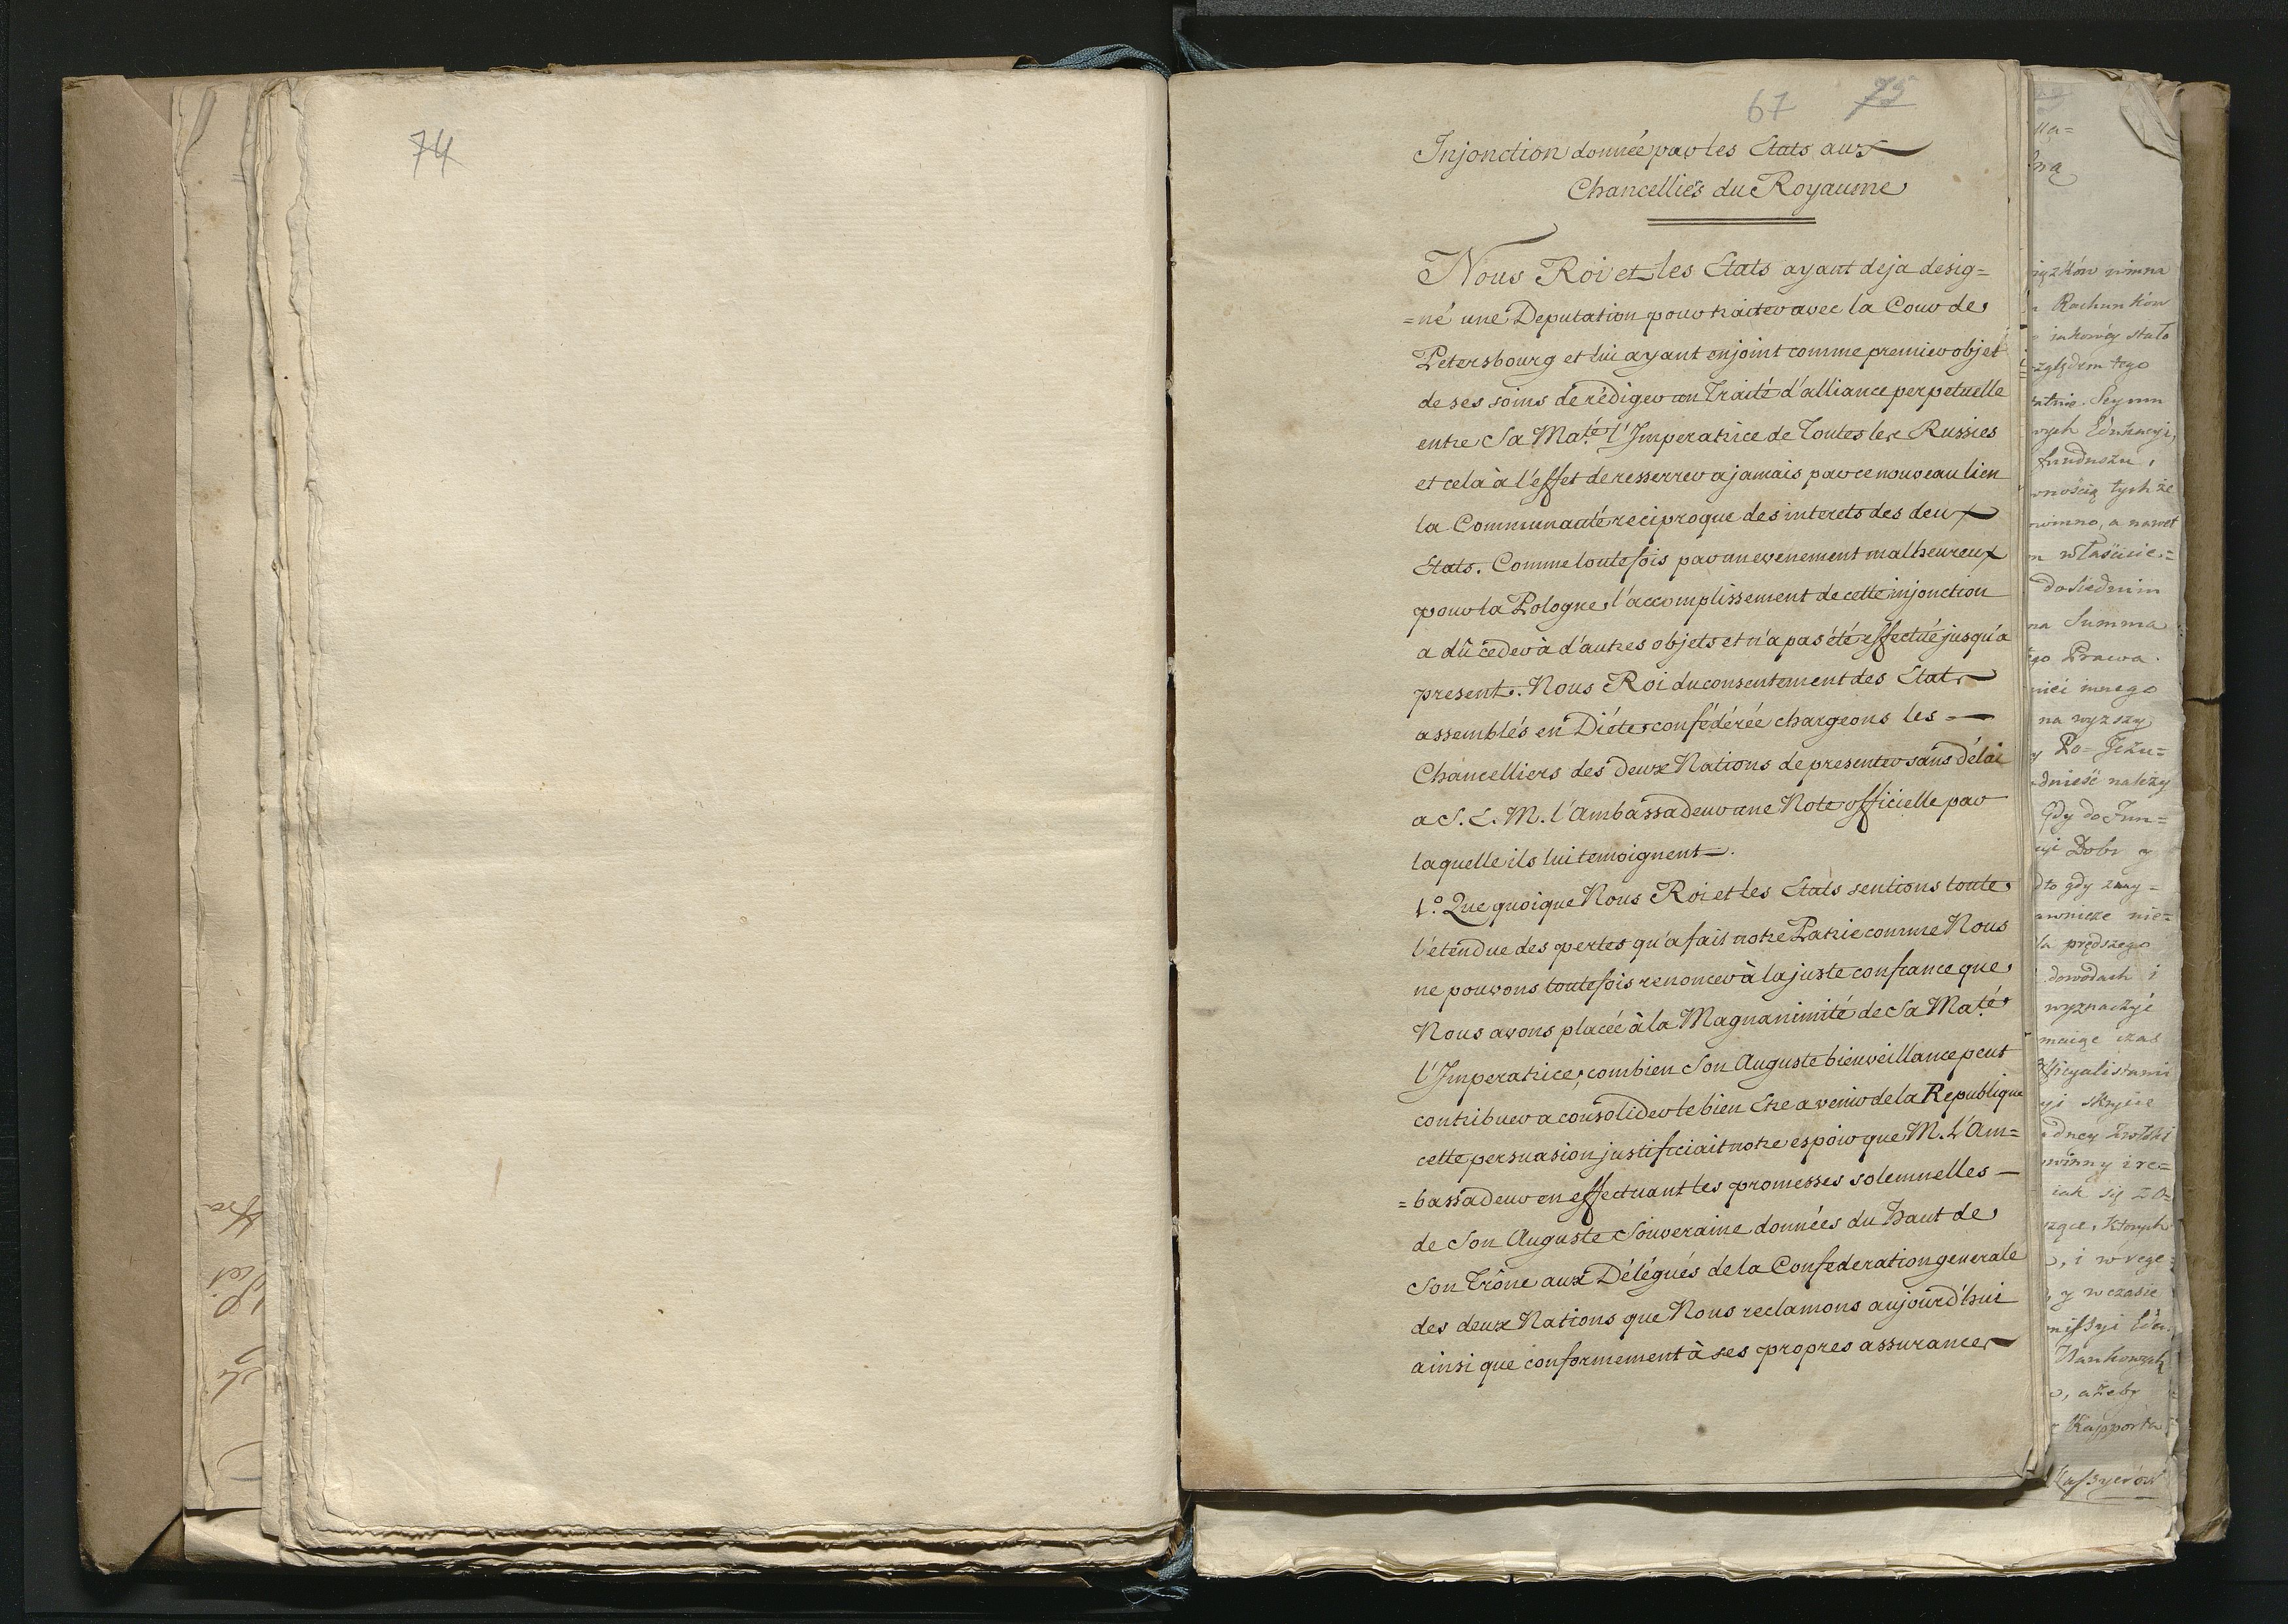 74
67 75
Injonction donnée par les Etats aux
Chancelliers du Royaume
Nous Roi et les Etats ayant deja desig=
=né une Deputation pour traiter avec la Cour de
Petersbourg et lui ayant enjoint comme premier objet
de ses soins de rédiger un Traité d'alliance perpetuelle
entre Sa Maté l'Imperatrice de Toutes les Russies
et cela à l'effet de resserrer a jamais par ce nouveau lien
la Communauté reciproque des interets des deux
Etats. Comme toutefois par un evenement malheureux
pour la Pologne, l'accomplissement de cette injonction
a dû ceder à d'autres objets et n'a pas été effectué jusqu'a
present. Nous Roi du consentement des Etats
assemblés en Diéte confédérée chargeons les =
Chancelliers des deux Nations de presenter sans délai
a S. E. M. l'Ambassadeur une Note officielle par
laquelle ils lui temoignent.
1.o Que quoique Nous Roi et les Etats sentions toute
l'etendue des pertes qu'a fait notre Patrie comme Nous
ne pouvons toutefois renoncer à la juste confiance que
Nous avons placée à la Magnanimité de Sa Maté
l'Imperatrice, combien Son Auguste bienveillance peut
contribuer a consolider le bien Etre a venir de la Republique
cette persuasion justificiait notre espoir que M. L'Am=
=bassadeur en effectuant les promesses solemnelles
de Son Auguste Souveraine données du haut de
Son Trône aux Délégués de la Confederation generale
des deux Nations que Nous reclamons aujourd'hui
ainsi que conformement à ses propres assurances
na Summa
Prawa
innego
na wyzszy
należy
Gdy do Fun=
Dobr y
gdy
prędszego
dowodach i
czas
iak się zo=
i w
y w czasie
, ażeby
Rapporta